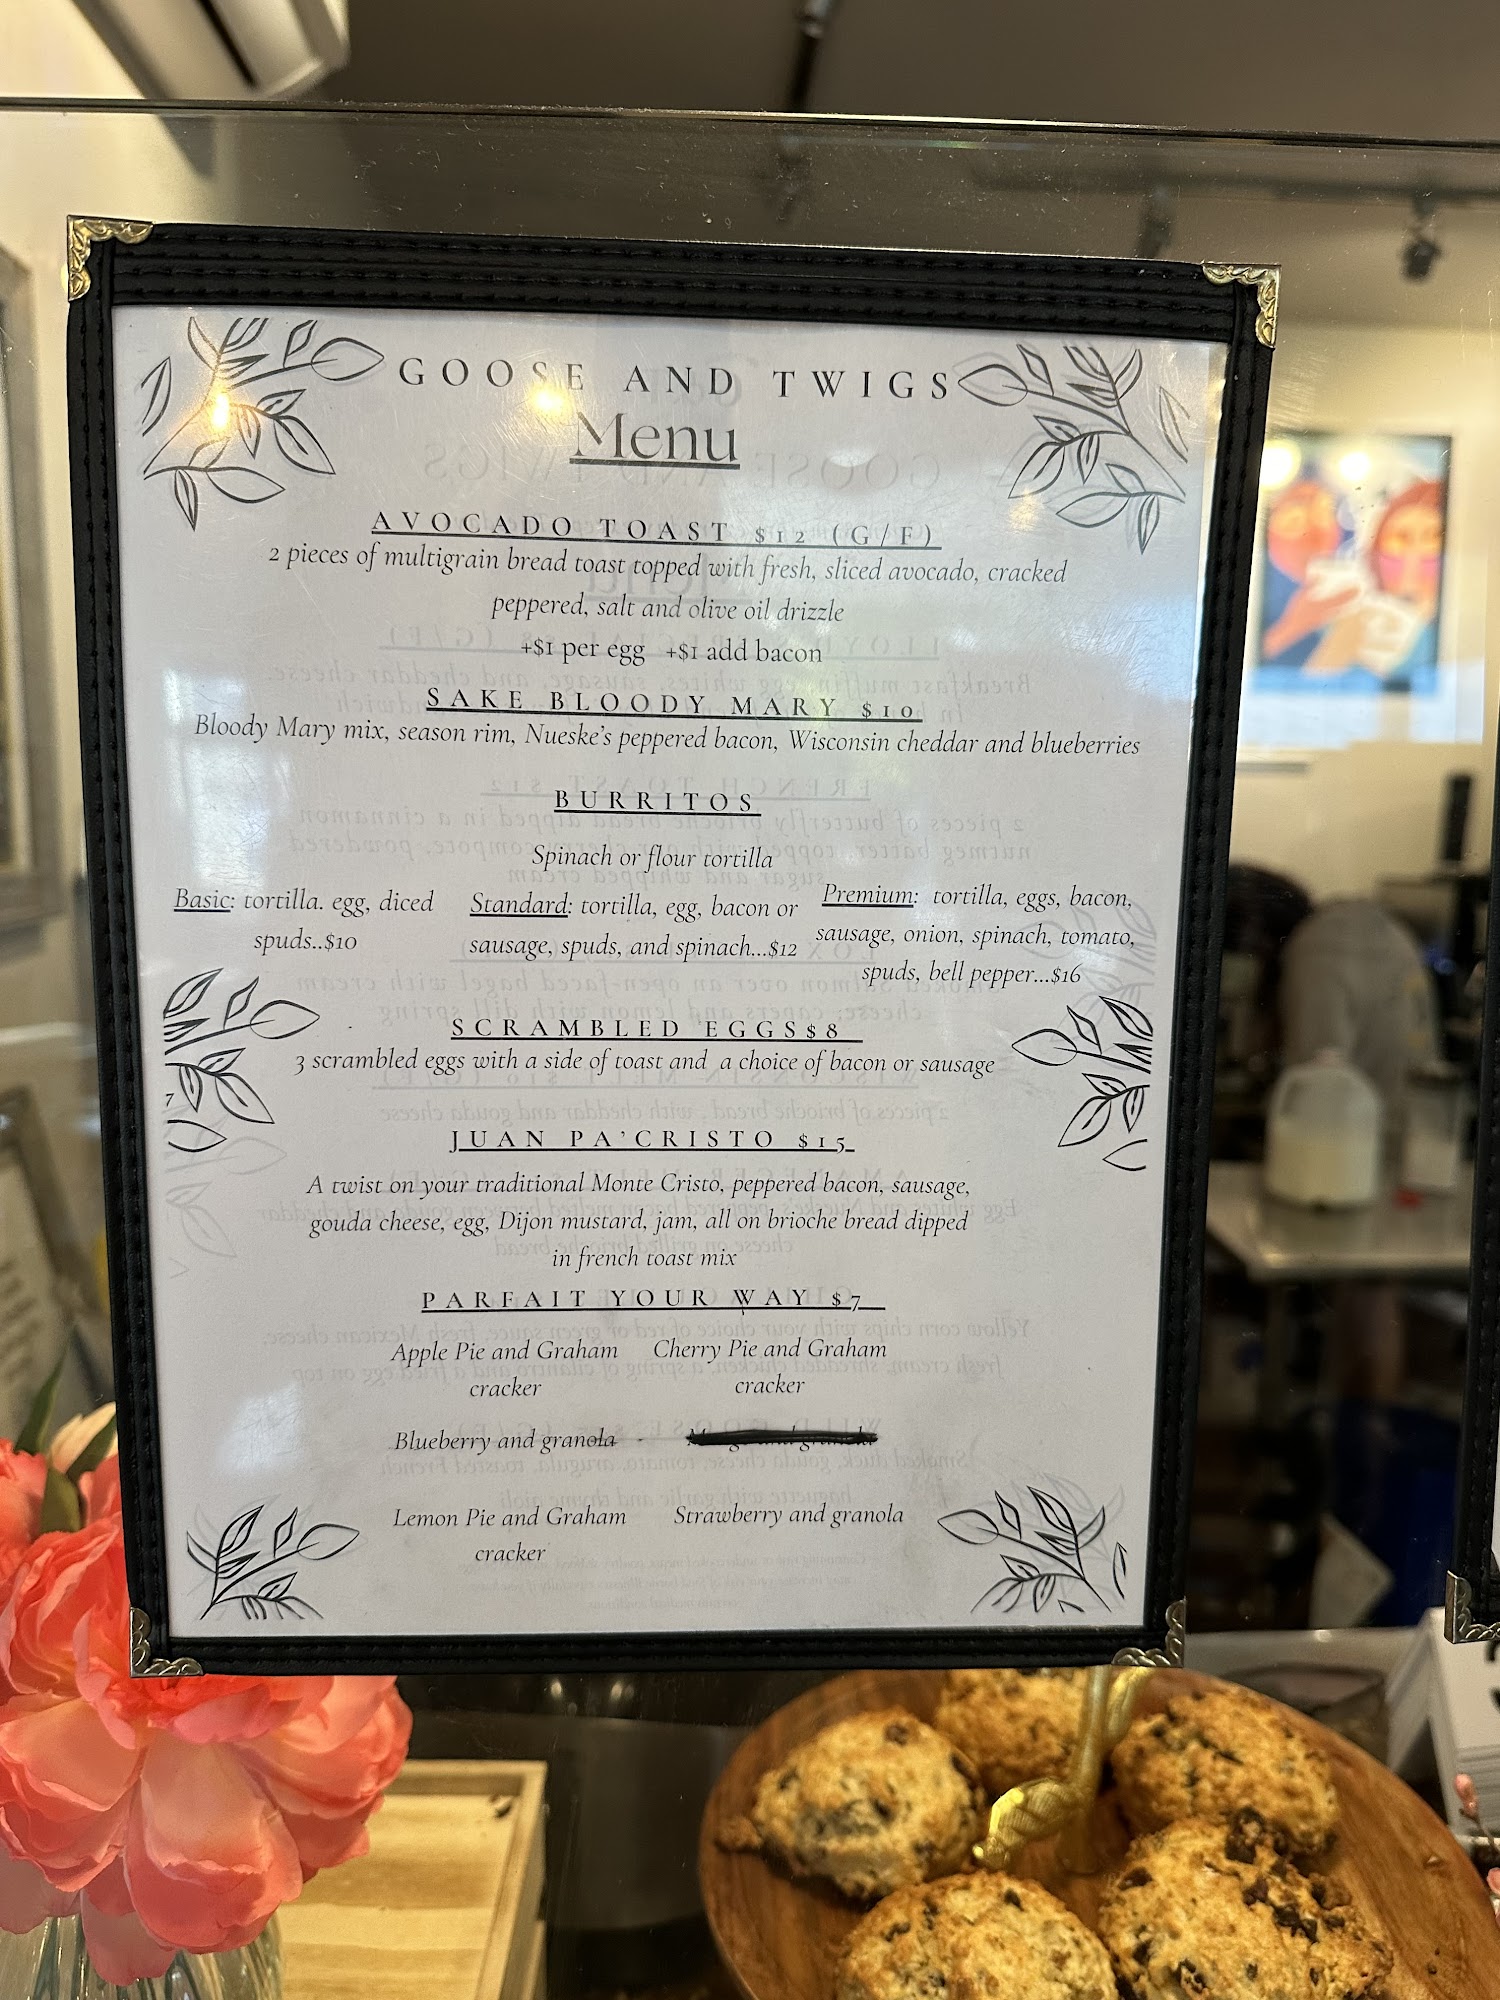 GOOSE AND TWIGS
Menu
AVOCADO TOAST $12 (G/F)
2 pieces of multigrain bread toast topped with fresh, sliced avocado, cracked
peppered, salt and olive oil drizzle
+$1 per egg +$1 add bacon
SAKE BLOODY MARY $10
Bloody Mary mix, season rim, Nueske's peppered bacon, Wisconsin cheddar and blueberries
BURRITOS
Spinach or flour tortilla
Basic: tortilla. egg, diced
spuds..$10
Standard: tortilla, egg, bacon or
sausage, spuds, and spinach...$12
Premium: tortilla, eggs, bacon,
sausage, onion, spinach, tomato,
spuds, bell pepper...$16
SCRAMBLED EGGS$8
3 scrambled eggs with a side of toast and a choice of bacon or sausage
7
JUAN PA'CRISTO $15
A twist on your traditional Monte Cristo, peppered bacon, sausage,
gouda cheese, egg, Dijon mustard, jam, all on brioche bread dipped
in french toast mix
PARFAIT YOUR WAY $7
Apple Pie and Graham
cracker
Cherry Pie and Graham
cracker
Blueberry and granola -
Lemon Pie and Graham
cracker
Strawberry and granola